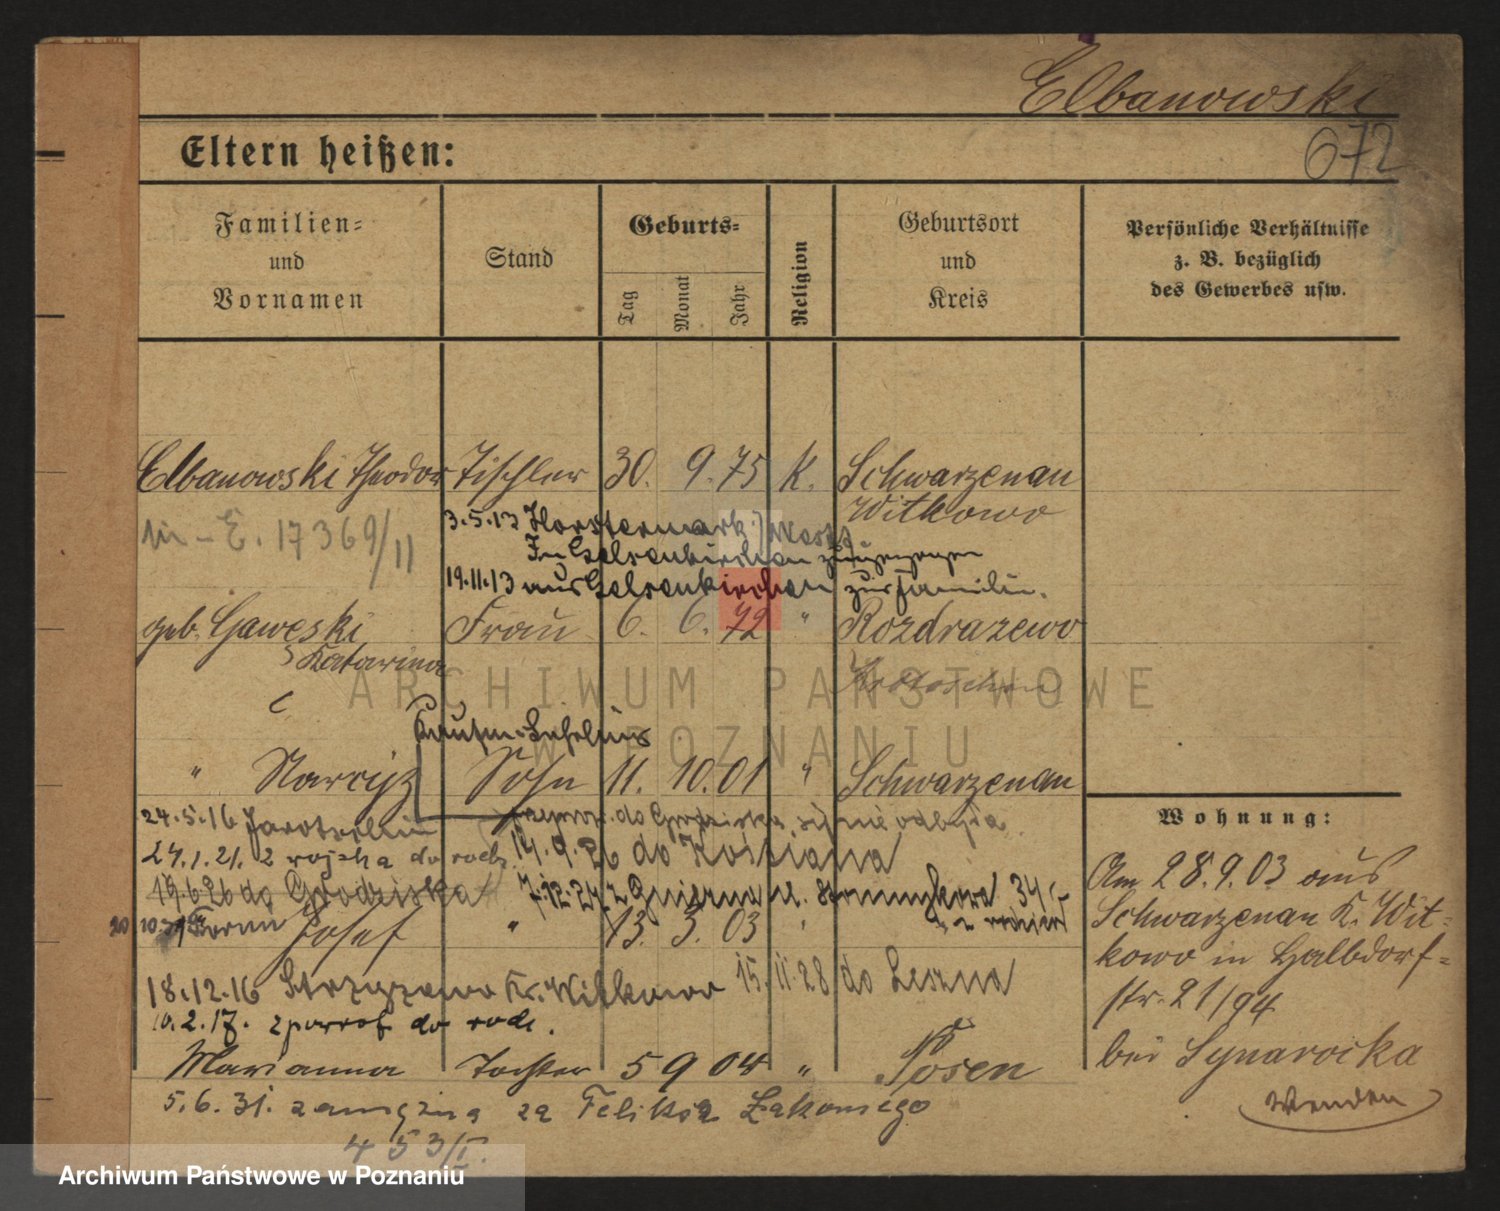 Elbanowski
672
Eltern heißen:
Familien-
und
Vornamen
Stand
Geburts-
Tag
Monat
Jahr
Religion
Geburtsort
und
Kreis
Persönliche Verhältnisse
z. B. bezüglich
des Gewerbes usw.
Elbanowski Theodor Tischler 30. 9. 75 K. Schwarzenau
Witkowo
17369/11
3.5.13 Horstermark
In Gelsenkirchen zugezogen
19.11.13 aus Gelsenkirchen zur Familie.
geb. Gaweski Frau 6. 6. 72 " Rozdrazewo
Katarina
Krotoschin
" Narcyz Sohn 11. 10. 01 " Schwarzenau
24.5.16 Jarotschin do Grodziska, się nie odbyła
24.1.21. z wojska do rodz. 14.9.26 do Kościana
19.6.26 do Grodziska 7.12.27 z Gniezna 34
Josef " 13. 3. 03 "
18.12.16 Strzyzewo Kr. Witkowo 15.11.28 do Leszna
10.2.17. z powrot do rodz.
Marianna Tochter 5 9 04 " Posen
5.6.31. zamężna za Feliksa Łakomego
453/I.
Wohnung:
Am 28.9.03 aus
Schwarzenau K. Wit-
kowo in Halbdorf-
str. 21/94
bei Synarocka
Wenden
ARCHIWUM PAŃSTWOWE
W POZNANIU
Archiwum Państwowe w Poznaniu